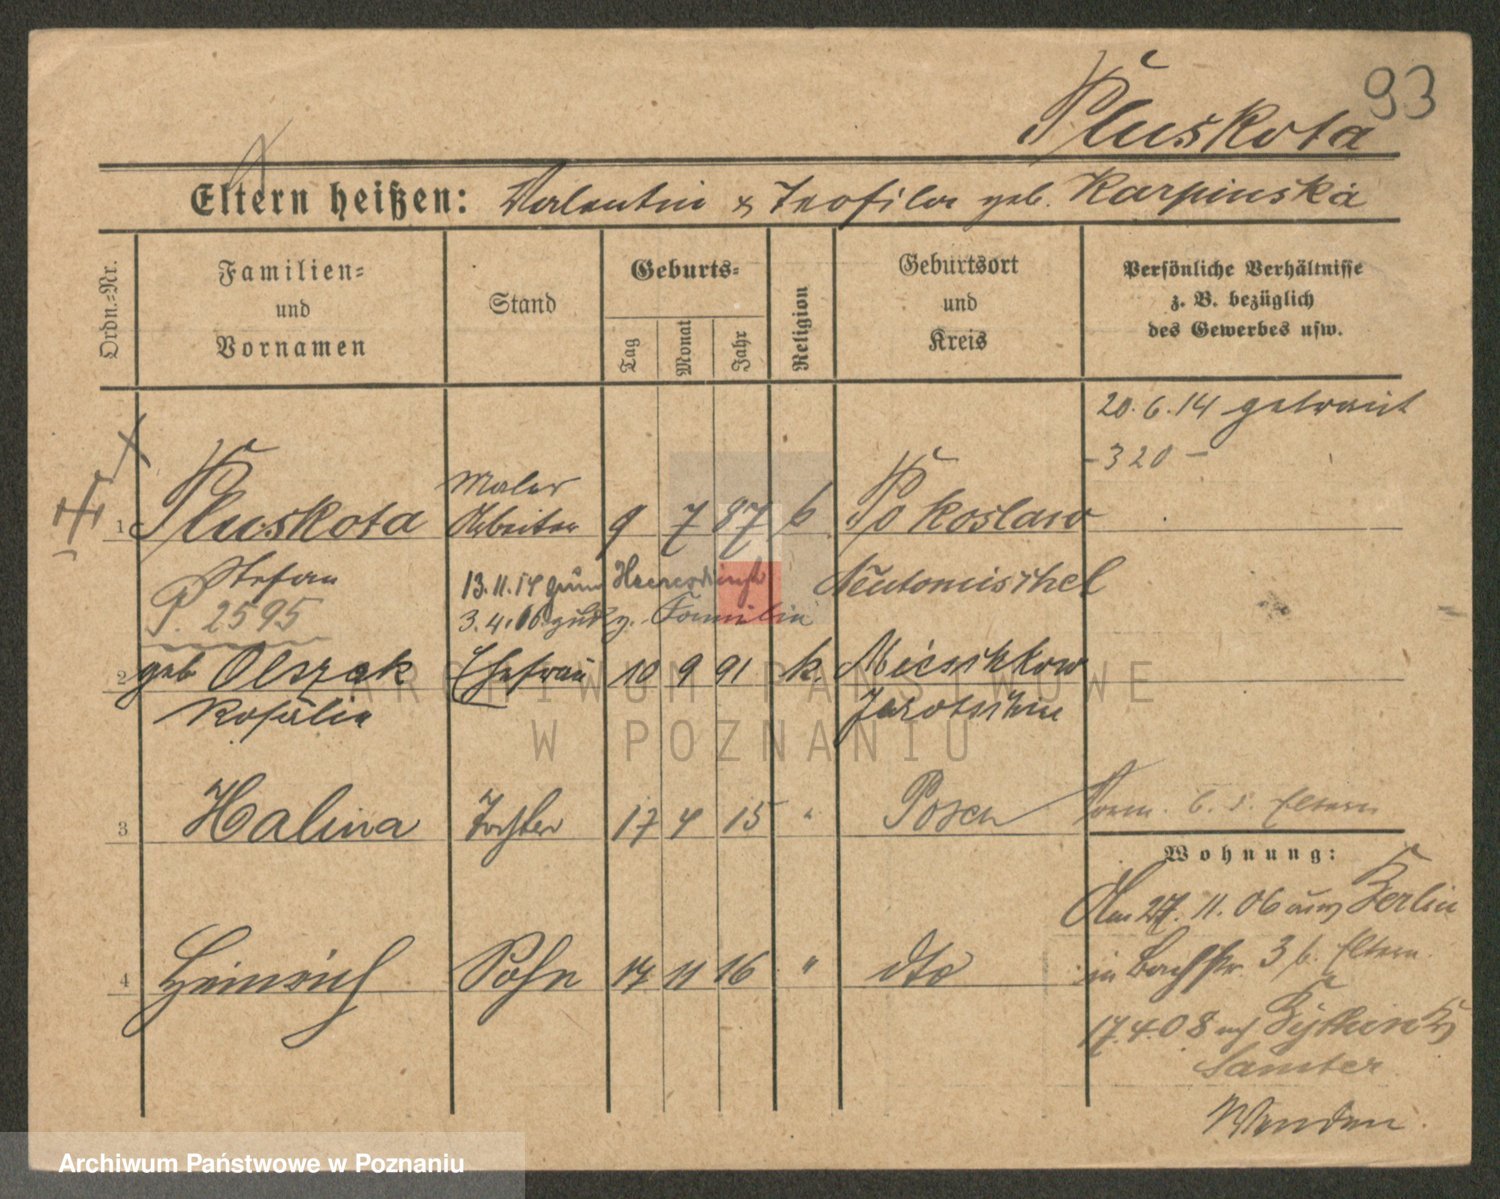 93
Pluskota
Eltern heißen: Valentin & Teofila geb. Karpinska
Ordn.-Nr.
Familien-
und
Vornamen
Stand
Geburts-
Tag
Monat
Jahr
Religion
Geburtsort
und
Kreis
Persönliche Verhältnisse
z. B. bezüglich
des Gewerbes usw.
20.6.14 getraut
-320-
Maler
1 Pluskota Arbeiter 9 7 87 k Pokoslaw
Stefan 13.11.14 zum Heeresdienst Neutomischel
P. 2595 3.4.16 zurück z. Familie
2 geb Olszak Ehefrau 10 9 91 k. Mieschkow
Rosalie Jarotschin
3 Halina Tochter 17 4 15 " Posen
4 Heinrich Sohn 14 11 16 " dto
Vorm. b. d. Eltern
Wohnung:
Am 27.11.06 aus Berlin
in Bachstr. 3 b. Eltern.
17.4.08 nach
Samter
Wenden.
ARCHIWUM PAŃSTWOWE
W POZNANIU
Archiwum Państwowe w Poznaniu